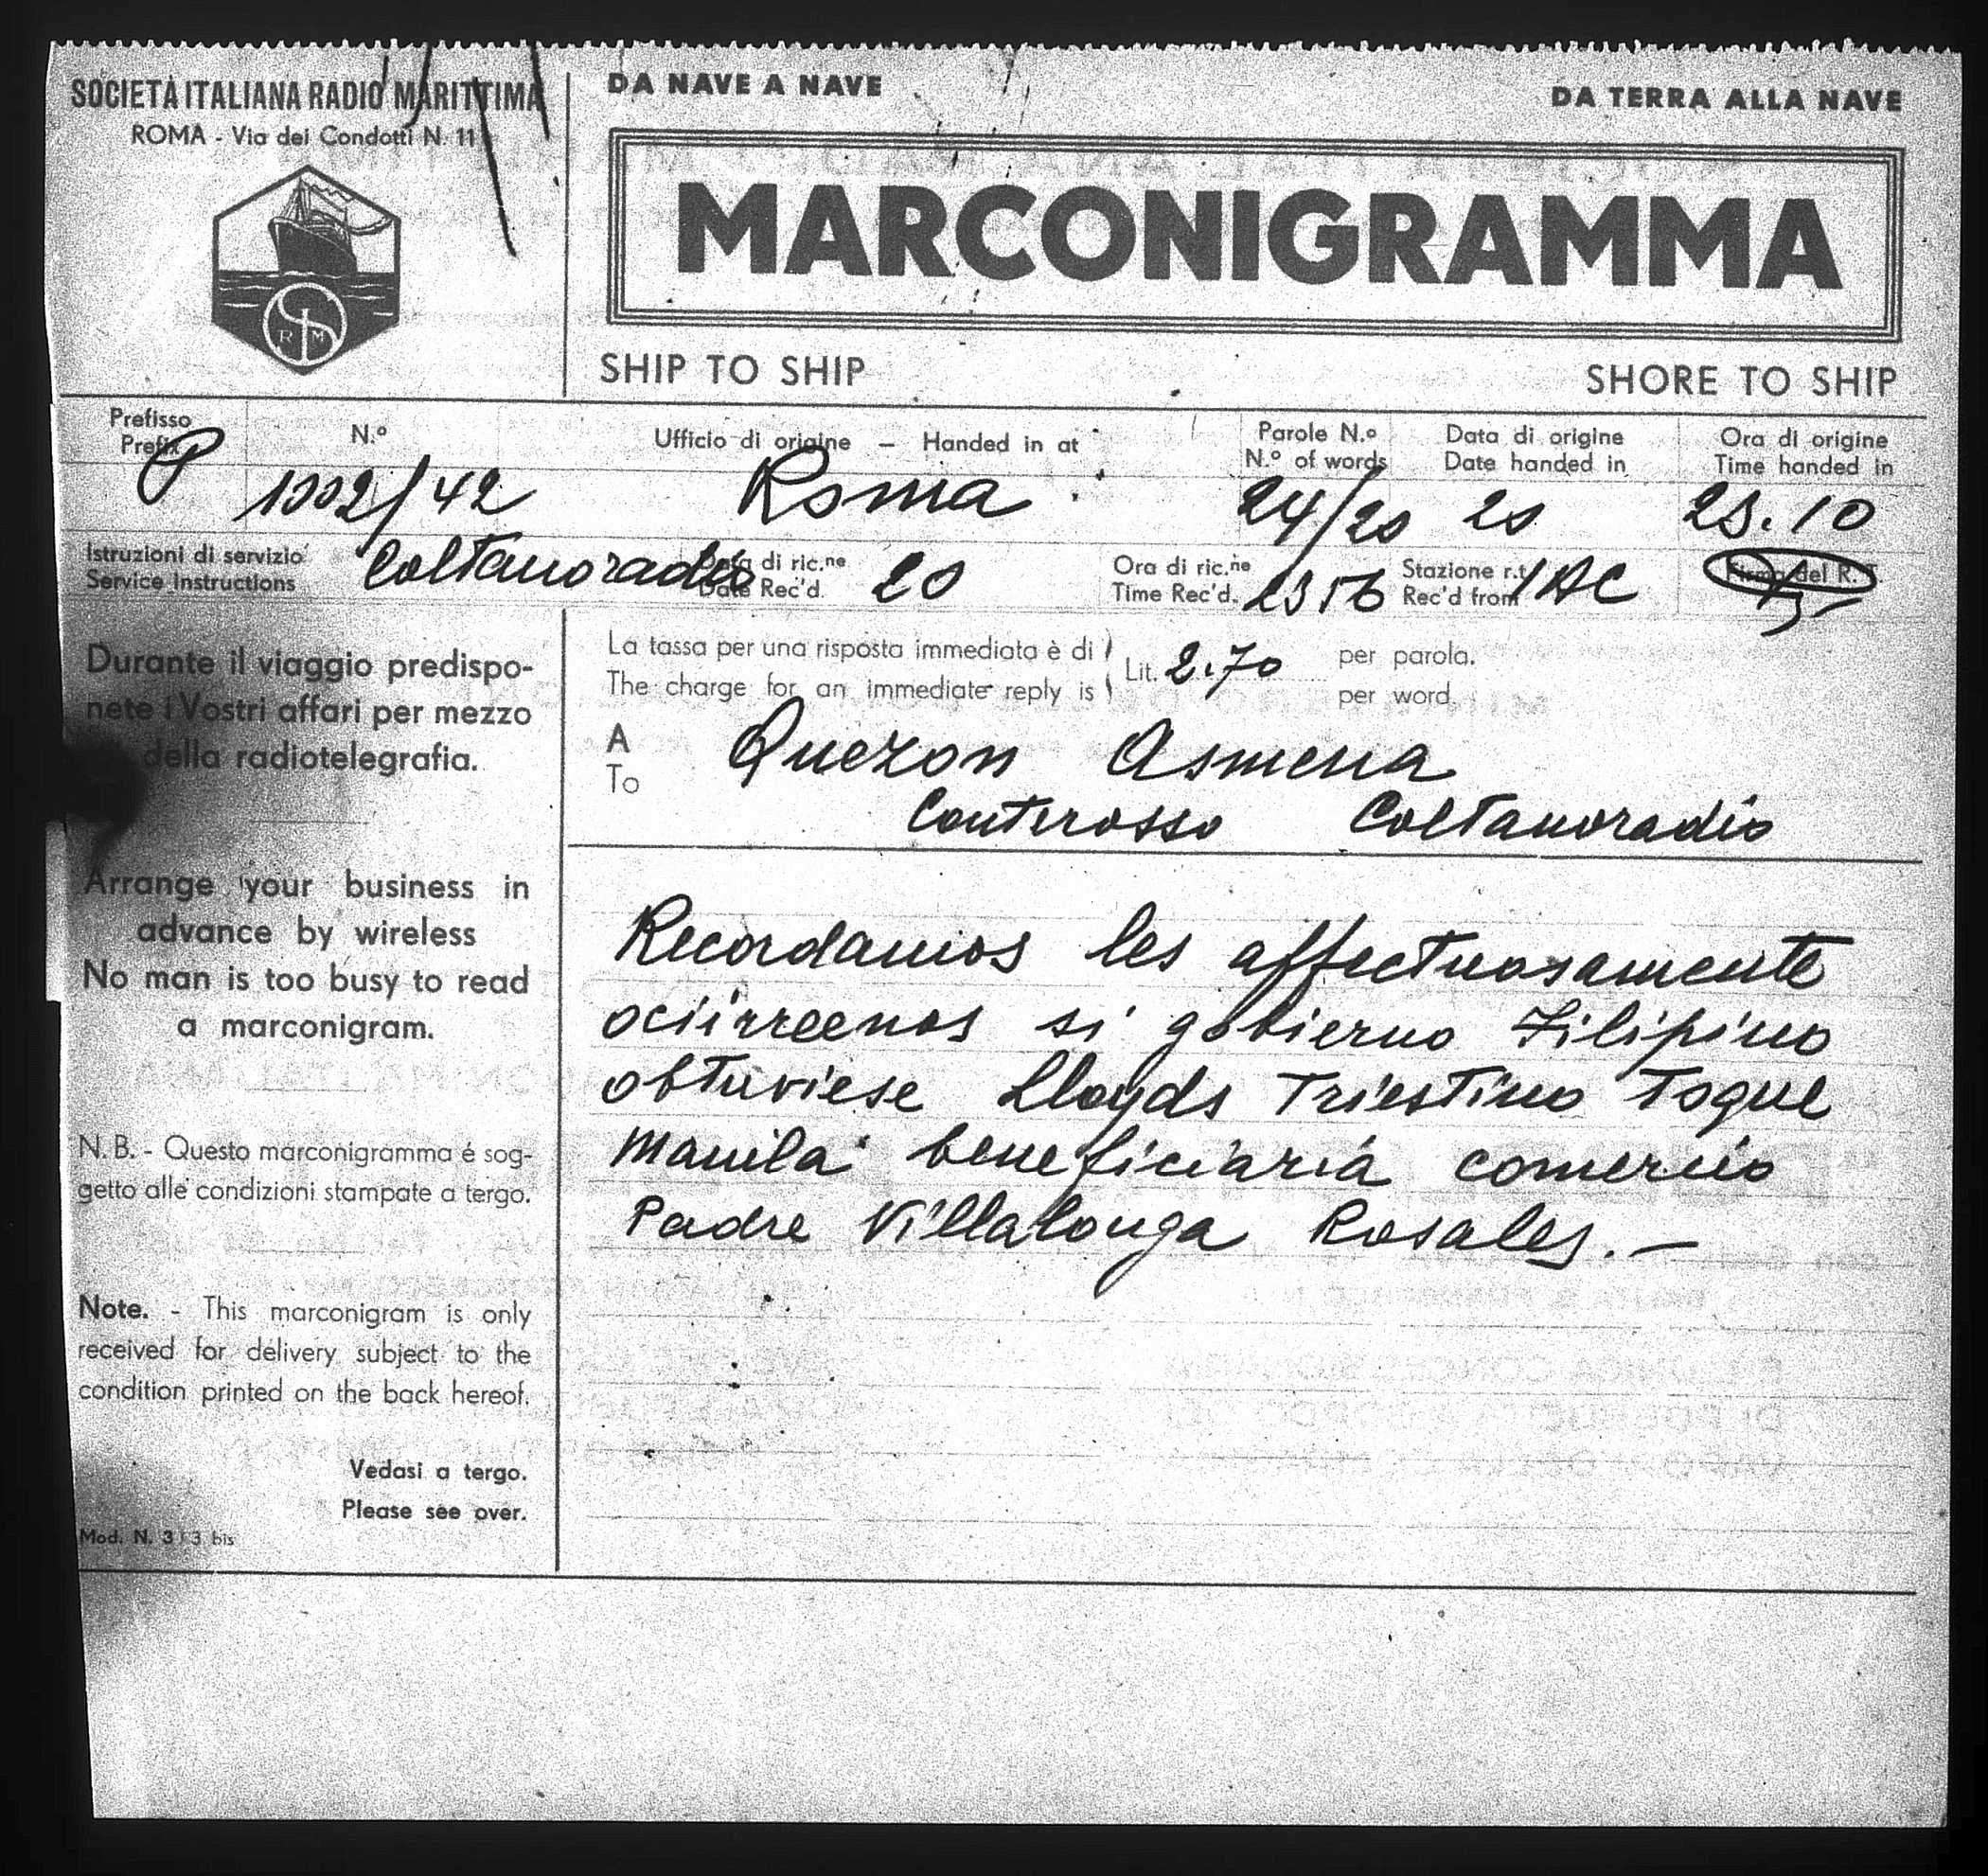 SOCIETÀ ITALIANA RADIO MARITTIMA
ROMA - Via dei Condotti N. 11
R M
DA NAVE A NAVE
DA TERRA ALLA NAVE
MARCONIGRAMMA
SHIP TO SHIP
SHORE TO SHIP
Prefisso
Prefix
N.º
Ufficio di origine — Handed in at
Parole N.º
N.º of words
Data di origine
Date handed in
Ora di origine
Time handed in
P 1002/42 Roma 24/20 20 23.10
Istruzioni di servizio
Service Instructions
Coltanoradio
Data di ric.ne
Date Rec'd.
20
Ora di ric.ne
Time Rec'd.
2356
Stazione r.t.
Rec'd from
IAC
Firma del R. T.
La tassa per una risposta immediata è di
The charge for an immediate reply is
Lit. 2.70
per parola.
per word.
A
To
Quezon Osmena
Conterosso Coltanoradio
Recordamos les affectuosamente
ociirreenos si gobierno Filipino
obtuviese Lloyds Triestino toque
Manila beneficiaria comercio
Padre Villalonga Rosales. —
Durante il viaggio predispo-
nete i Vostri affari per mezzo
della radiotelegrafia.
Arrange your business in
advance by wireless
No man is too busy to read
a marconigram.
N. B. - Questo marconigramma é sog-
getto alle condizioni stampate a tergo.
Note. - This marconigram is only
received for delivery subject to the
condition printed on the back hereof.
Vedasi a tergo.
Please see over.
Mod. N. 3 / 3 bis